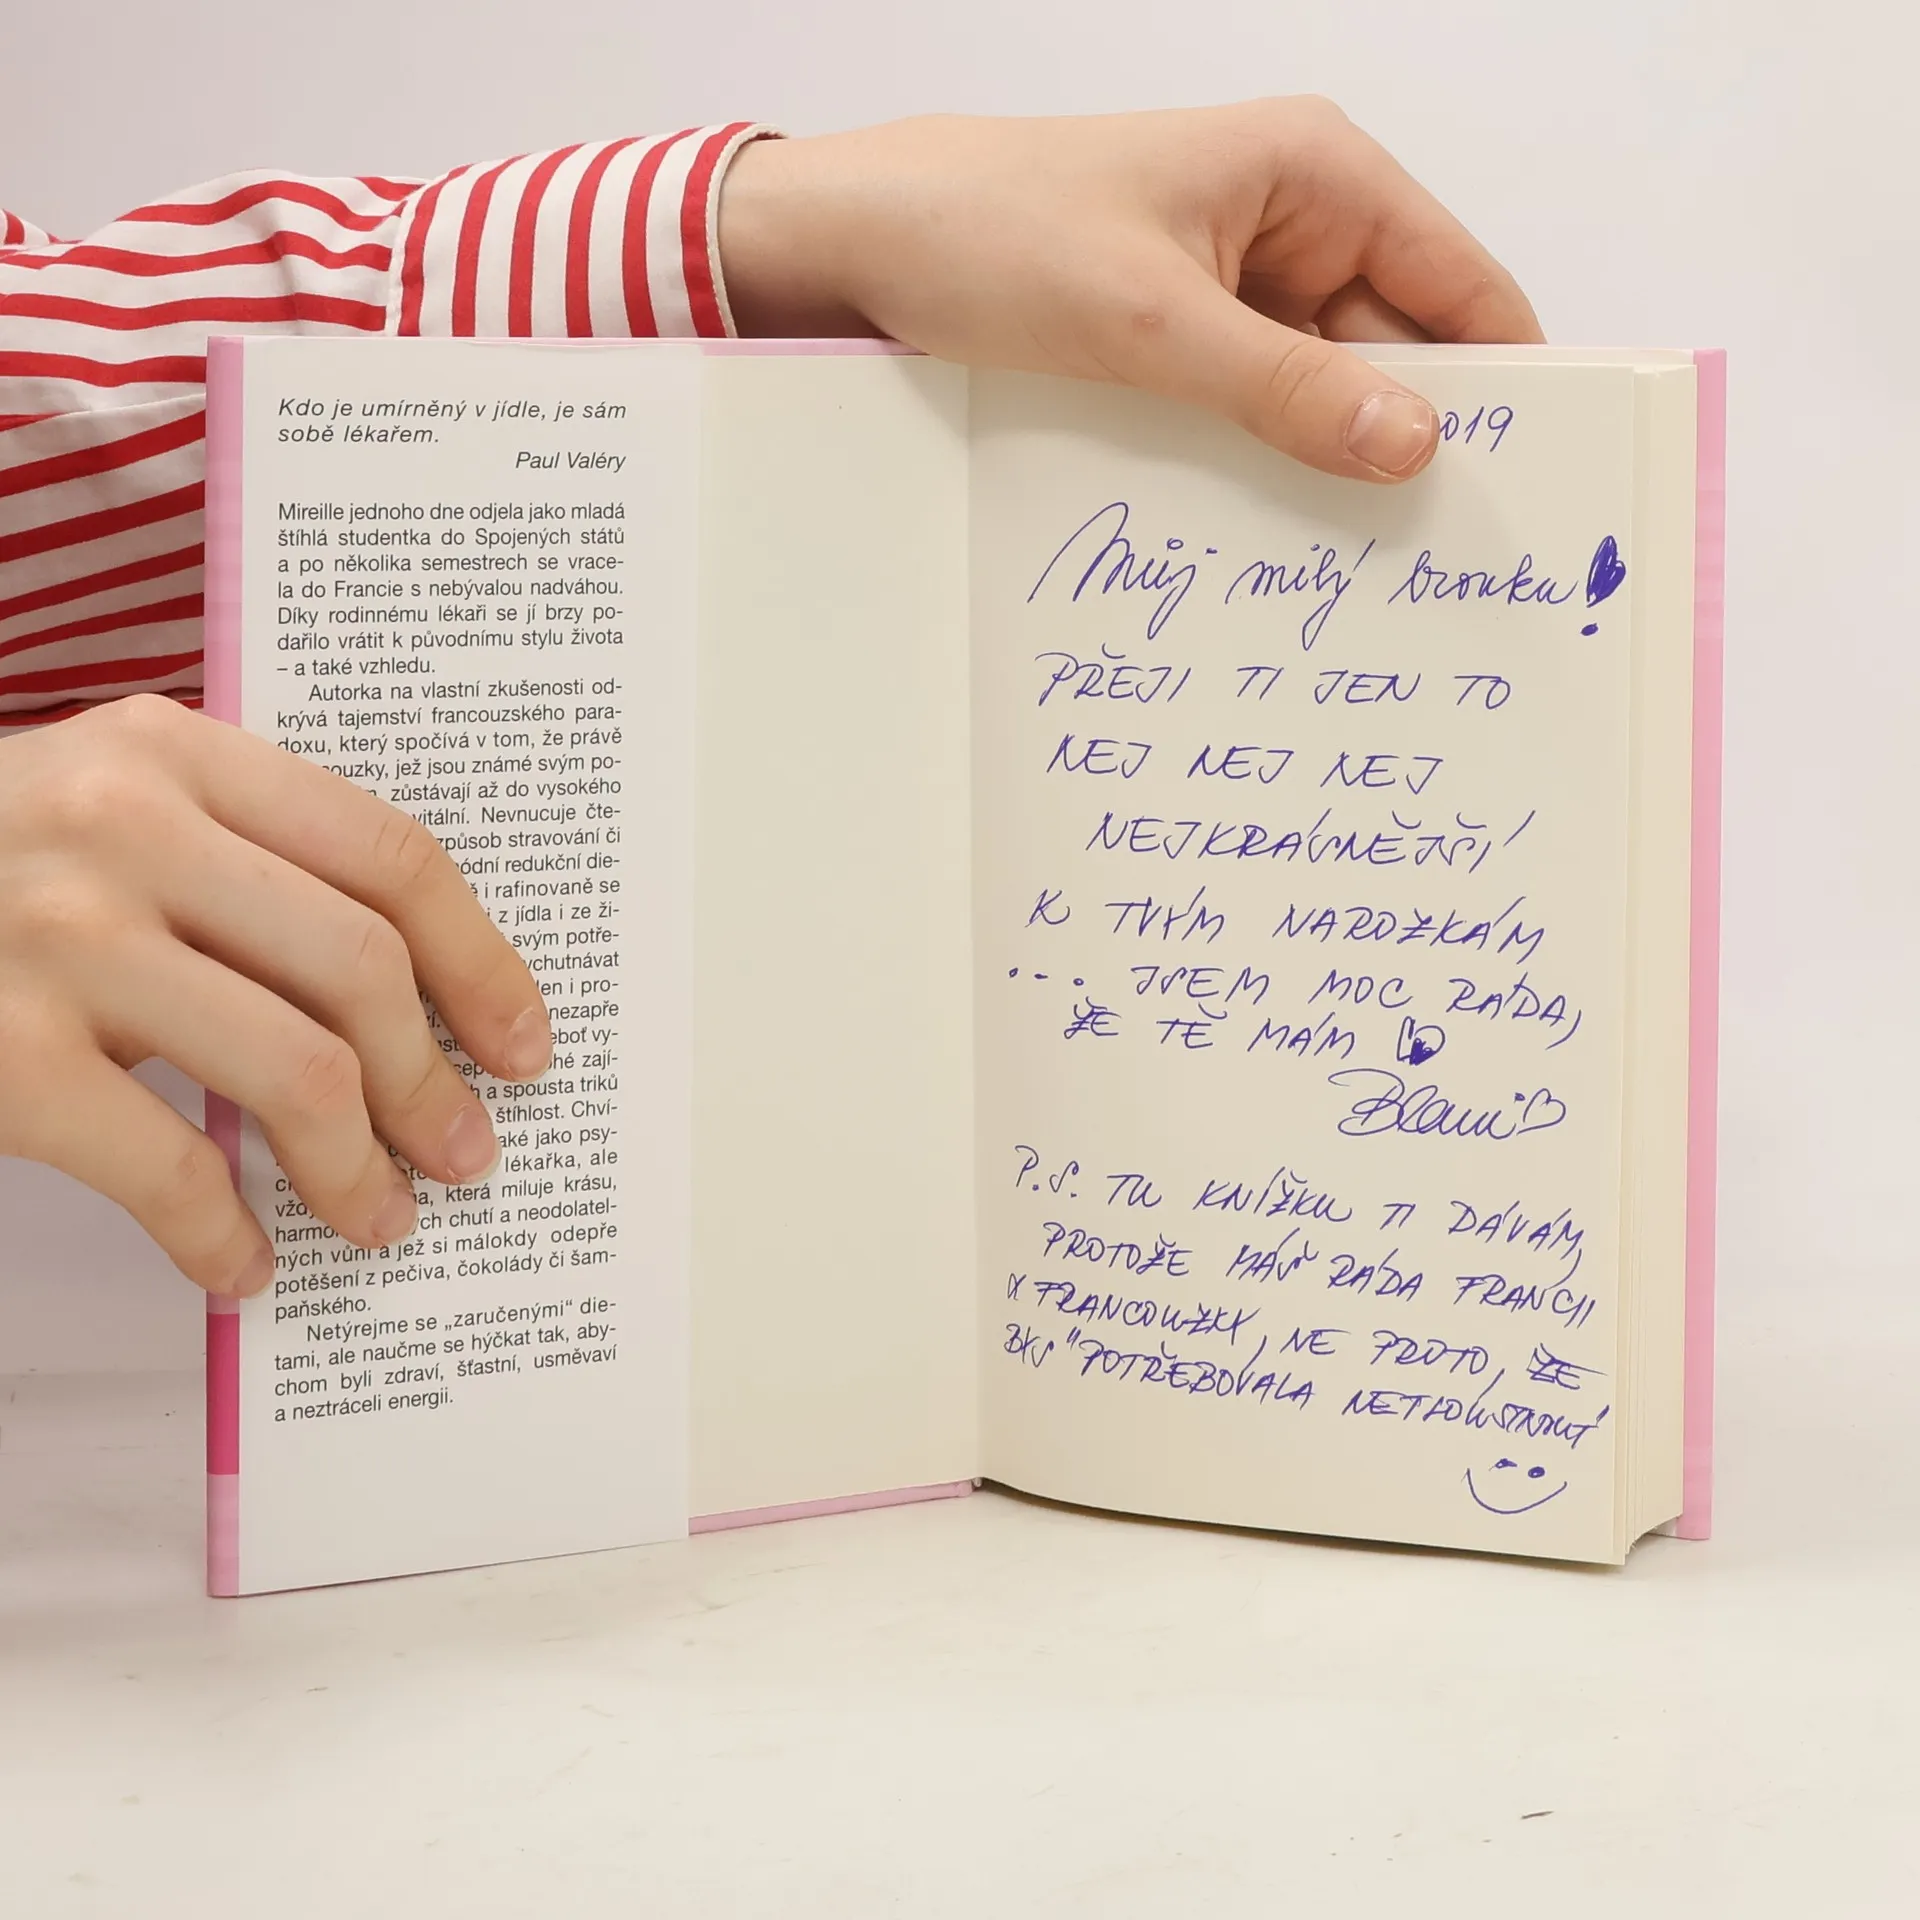 Kdo je umírněný v jídle, je sám
sobě lékařem.
Paul Valéry
Mireille jednoho dne odjela jako mladá
štíhlá studentka do Spojených států
a po několika semestrech se vrace-
la do Francie s nebývalou nadváhou.
Díky rodinnému lékaři se jí brzy po-
dařilo vrátit k původnímu stylu života
– a také vzhledu.
Autorka na vlastní zkušenosti od-
krývá tajemství francouzského para-
doxu, který spočívá v tom, že právě
jež jsou známé svým po-
zůstávají až do vysokého
vitální. Nevnucuje čte-
způsob stravování či
módní redukční die-
i rafinovaně se
z jídla i ze ži-
svým potře-
vychutnávat
i pro-
nezapře
neboť vy-
zají-
a spousta triků
štíhlost. Chví-
také jako psy-
lékařka, ale
která miluje krásu,
chutí a neodolatel-
ných vůní a jež si málokdy odepře
potěšení z pečiva, čokolády či šam-
paňského.
Netýrejme se „zaručenými“ die-
tami, ale naučme se hýčkat tak, aby-
chom byli zdraví, šťastní, usměvaví
a neztráceli energii.
019
Můj milý brouku!
PŘEJI TI JEN TO
NEJ NEJ NEJ
NEJKRÁSNĚJŠÍ
K TVÝM NAROZKÁM
... JSEM MOC RÁDA,
ŽE TĚ MÁM
P.S. TU KNÍŽKU TI DÁVÁM,
PROTOŽE MÁŠ RÁDA FRANCII
A FRANCOUZKY, NE PROTO, ŽE
BYS POTŘEBOVALA NETLOUSTNOUT